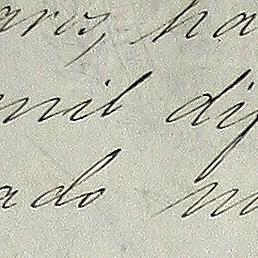 aris, ha
mil dif
ado no